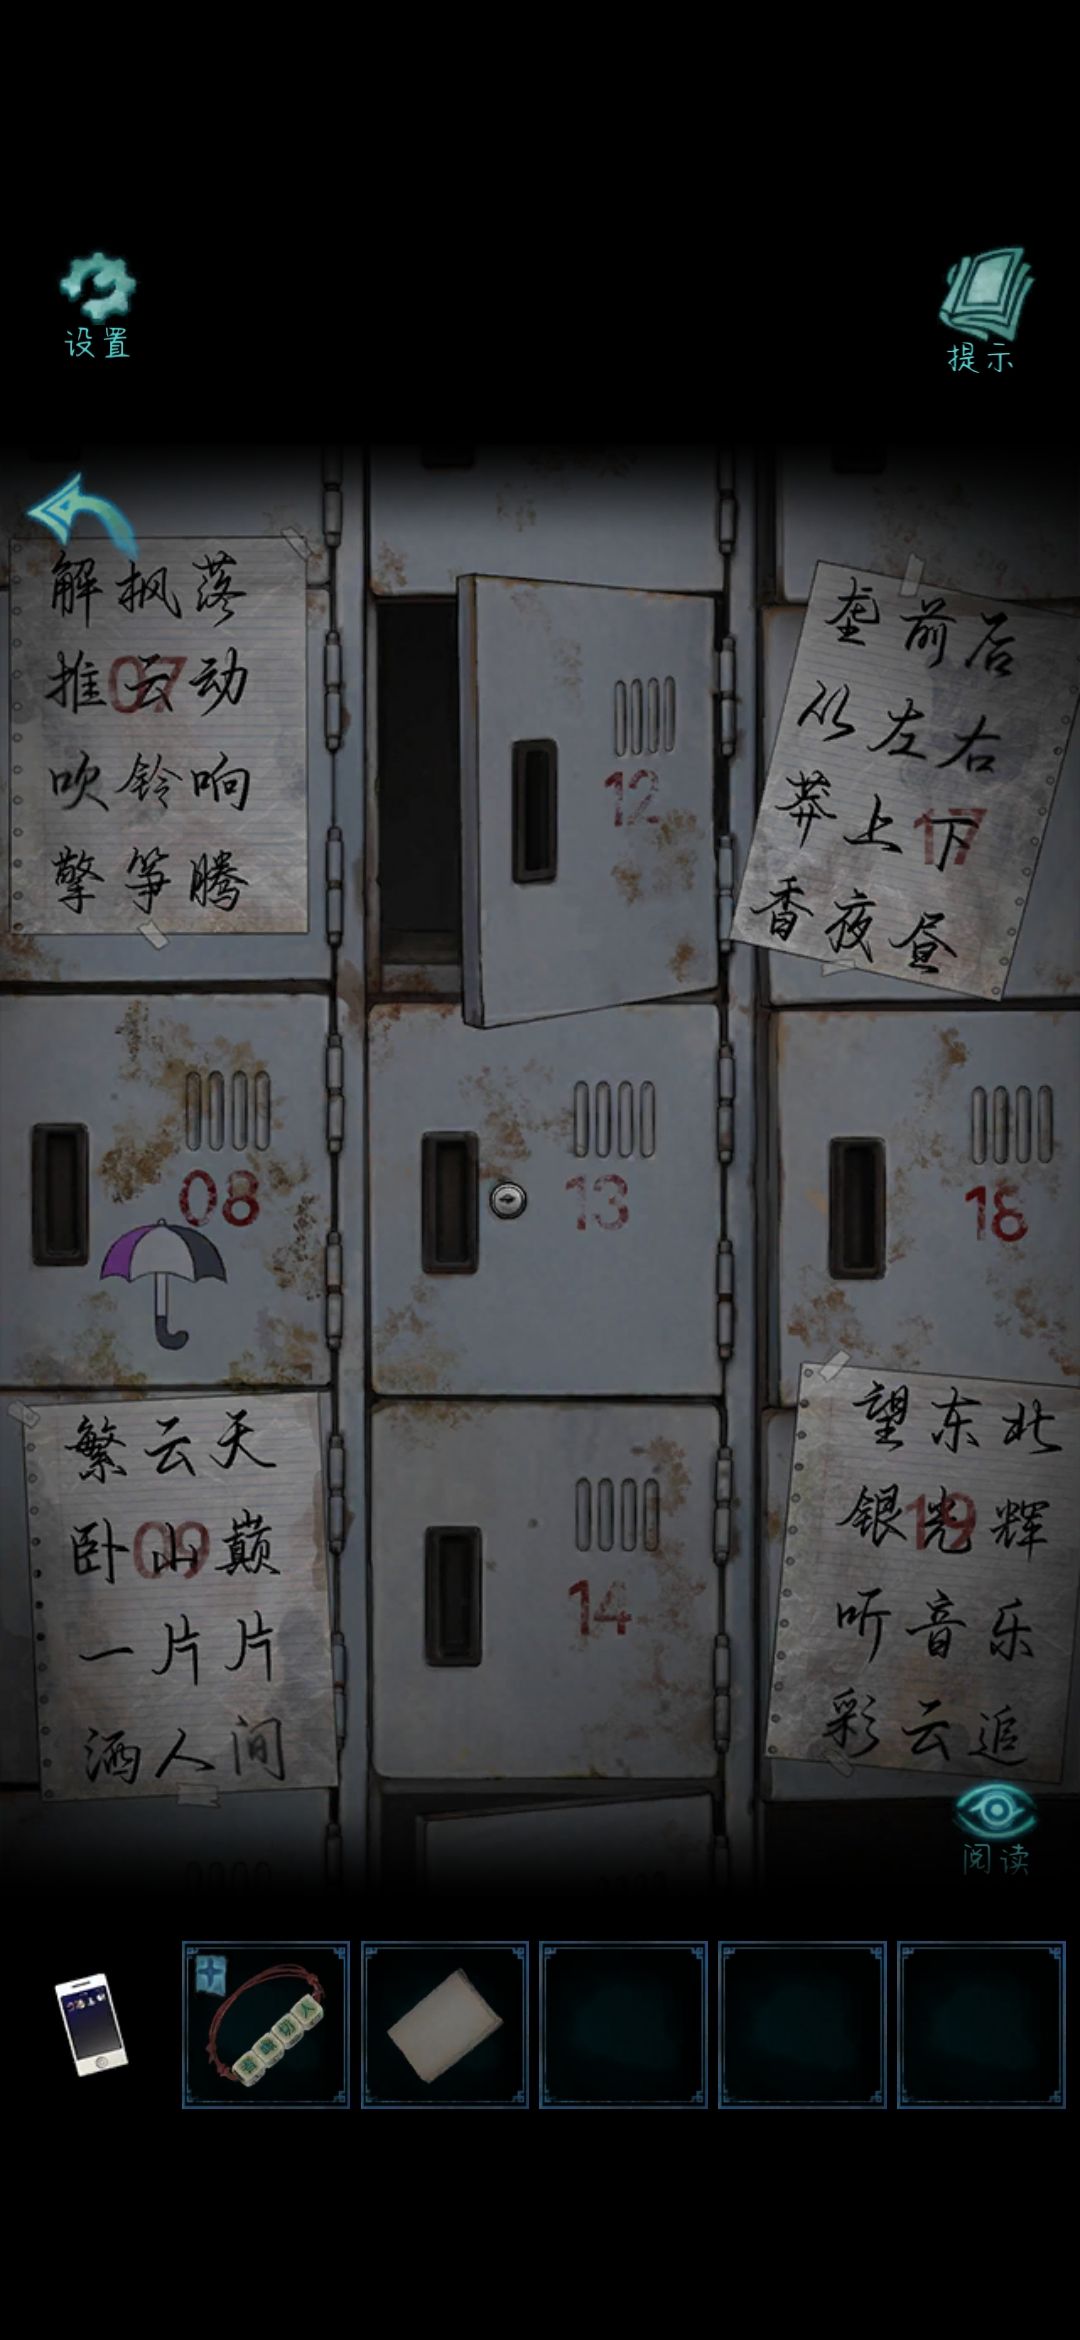 设置
提示
解枫落
推云动
吹铃响
擎筝腾
07
12
垄前后
从左右
莽上下
香夜昼
17
08
13
18
繁云天
卧山巅
一片片
洒人间
09
14
望东北
银光辉
听音乐
彩云追
19
阅读